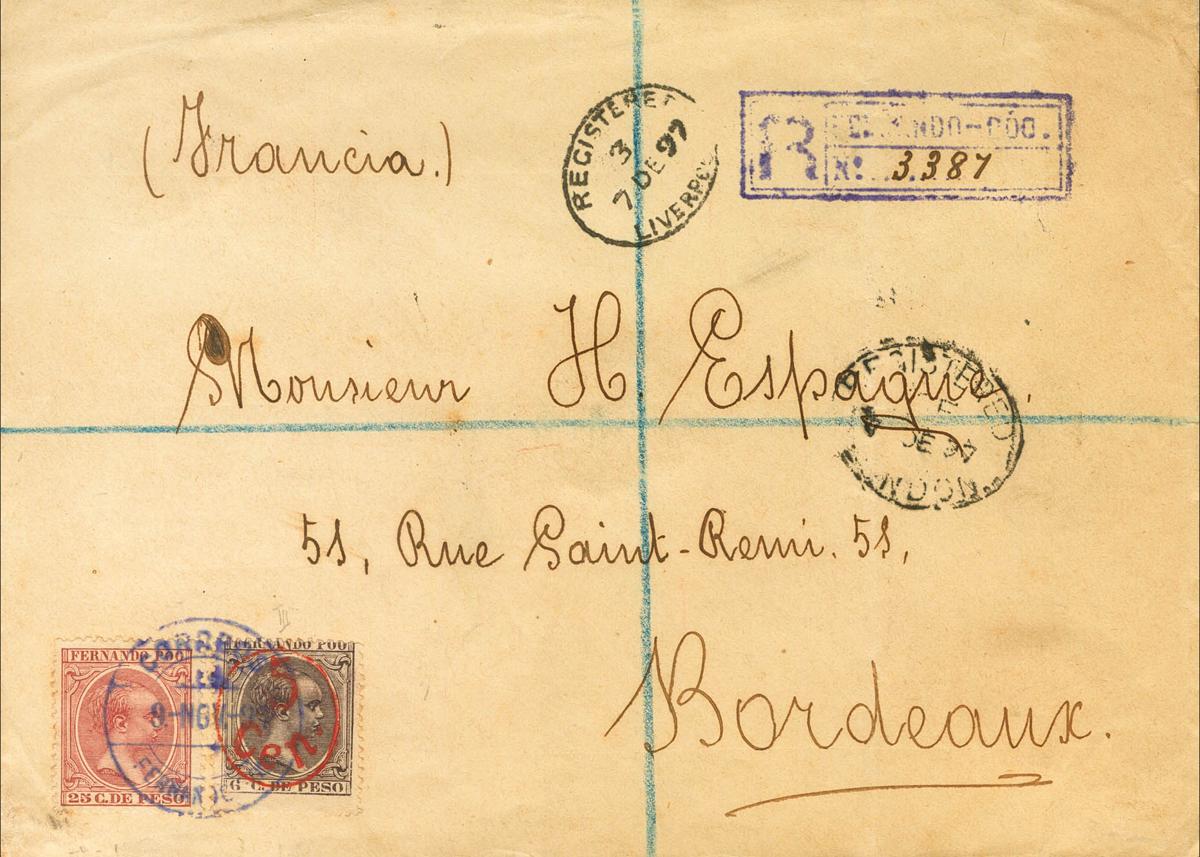 (Francia.)
REGISTERED
3
7 DE 97
LIVERPOOL
R
FERNANDO-PÓO.
Nº. 3.387
Monsieur H. Espagne.
REGISTERED
DE 97
LONDON
51, Rue Saint-Remi. 51,
Bordeaux.
CORREOS
9-NOV-97
FERNANDO
FERNANDO POO
25 C. DE PESO
FERNANDO POO
5
Cen.
6 C. DE PESO